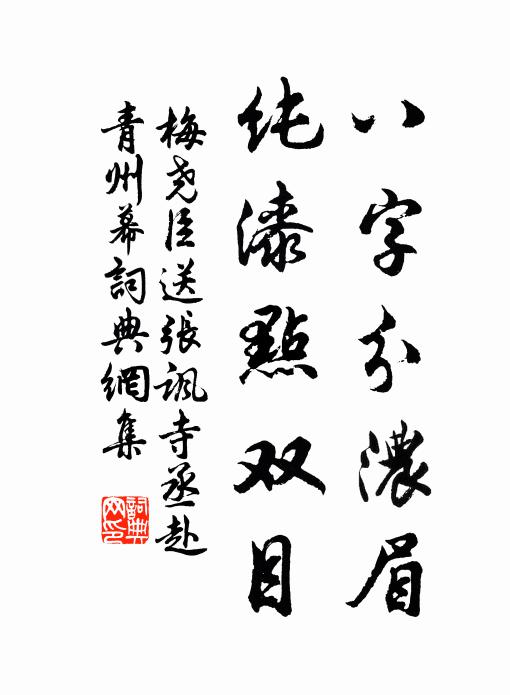 八字分濃眉
纯漆點双目
梅尧臣送張諷寺丞赴
青州幕詞典網集
詞典网印